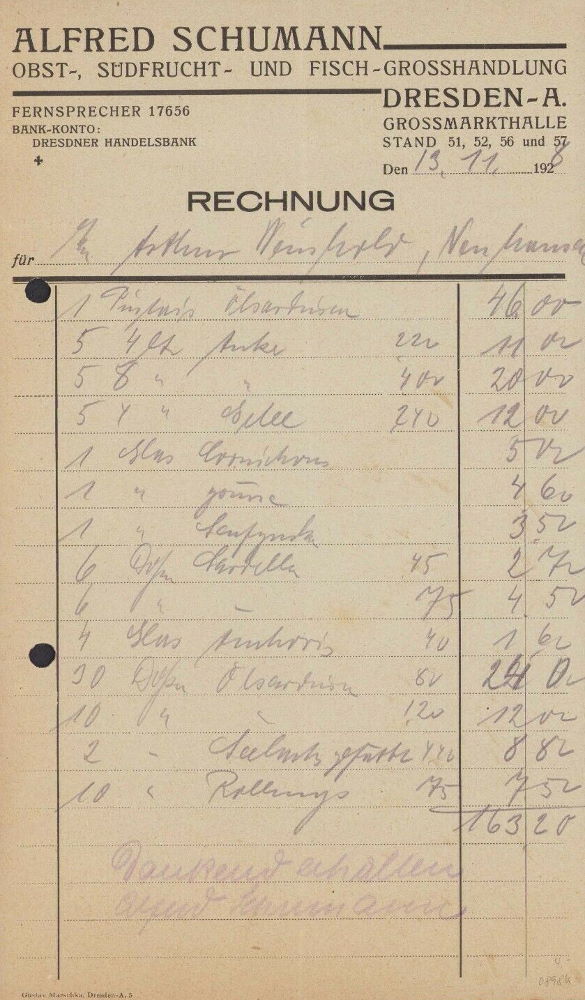 ALFRED SCHUMANN
OBST-, SÜDFRUCHT- UND FISCH-GROSSHANDLUNG
DRESDEN-A.
FERNSPRECHER 17656
BANK-KONTO:
DRESDNER HANDELSBANK
GROSSMARKTHALLE
STAND 51, 52, 56 und 57
Den 13. 11. 1928
RECHNUNG
für Arthur Weinhold,
1 Ölsardinen 46 00
5 4 220 11 00
5 8 " " 400 20 00
5 4 " Gelee 240 12 00
1 Glas Cornichons 5 00
1 " 4 60
1 " Senfgurken 3 50
6 Dosen Sardellen 45 2 70
6 " 75 4 50
4 Glas 40 1 60
30 Dosen Ölsardinen 80 24 00
10 " " 120 12 00
2 " 440 8 80
10 " Rollmops 75 7 50
163 20
Dankend erhalten
Alfred Schumann
Gustav Marschka, Dresden-A. 5